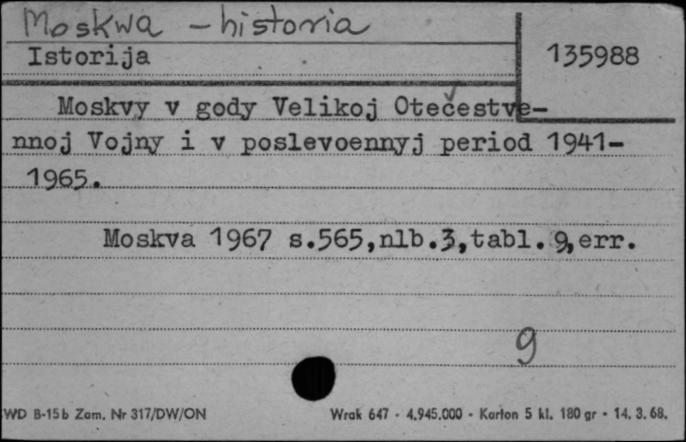 Moskwa - historia
Istorija
135988
Moskvy v gody Velikoj Otečestve-
nnoj Vojny i v poslevoennyj period 1941-
1965.
Moskva 1967 s.565,nlb.3,tabl.9,err.
9
WD B-15b Zam. Nr 317/DW/ON
Wrak 647 - 4.945.000 - Karton 5 kl. 180 gr - 14. 3. 68.